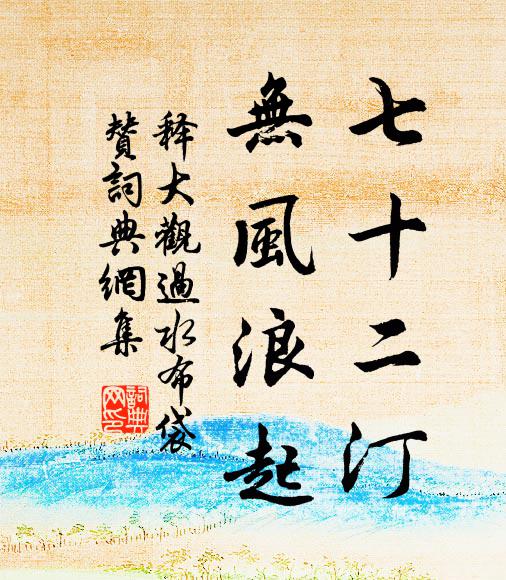 七十二汀
無風浪起
释大觀過水布袋
贊詞典網集
詞典
网印